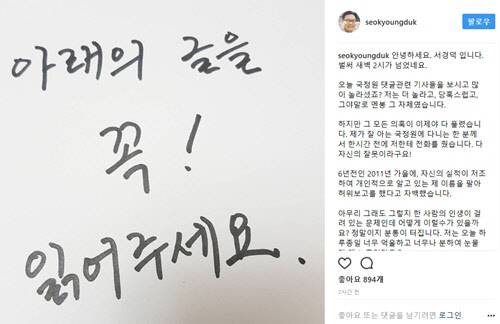 아래의 글을
꼭!
읽어주세요.
seokyoungduk
팔로우
seokyoungduk 안녕하세요. 서경덕 입니다.
벌써 새벽 2시가 넘었네요.
오늘 국정원 댓글관련 기사들을 보시고 많
이 놀라셨죠? 저는 더 놀라고, 당혹스럽고,
그야말로 멘붕 그 자체였습니다.
하지만 그 모든 의혹이 이제야 다 풀렸습니
다. 제가 잘 아는 국정원에 다니는 한 분께
서 한시간 전에 저한테 전화를 줬습니다. 다
자신의 잘못이라구요!
6년전인 2011년 가을에, 자신의 실적이 저조
하여 개인적으로 알고 있는 제 이름을 팔아
허위보고를 했다고 자백했습니다.
아무리 그래도 그렇지 한 사람의 인생이 걸
려 있는 문제인데 어떻게 이럴수가 있을까
요? 정말이지 분통이 터집니다. 저는 오늘 하
루종일 너무 억울하고 너무나 분하여 눈물
좋아요 894개
7시간 전
좋아요 또는 댓글을 남기려면 로그인.